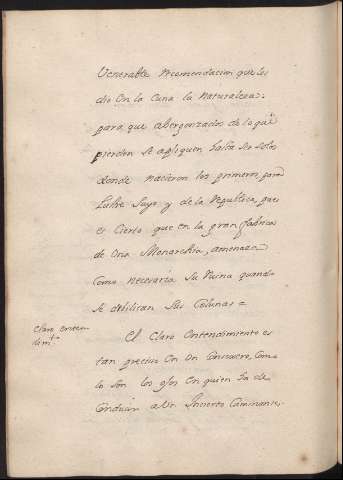 Venerable recomendacion que les
dio en la Cuna la Naturaleza:
para que abergonzados de lo que
pierden se apliquen hasta los
donde nacieron los primeros, para
Lustre Suyo y de la Republica, que
es Cierto que en la gran fabrica
de Una Monarchia, amenaza
como necesaria su Ruina quando
se devilitan sus Colunas =
Claro enten-
dim.to
El Claro Entendimiento es
tan preciso en Un Consejero, Como
lo son los ojos en quien ha de
Conducir a Un Incierto Caminante,